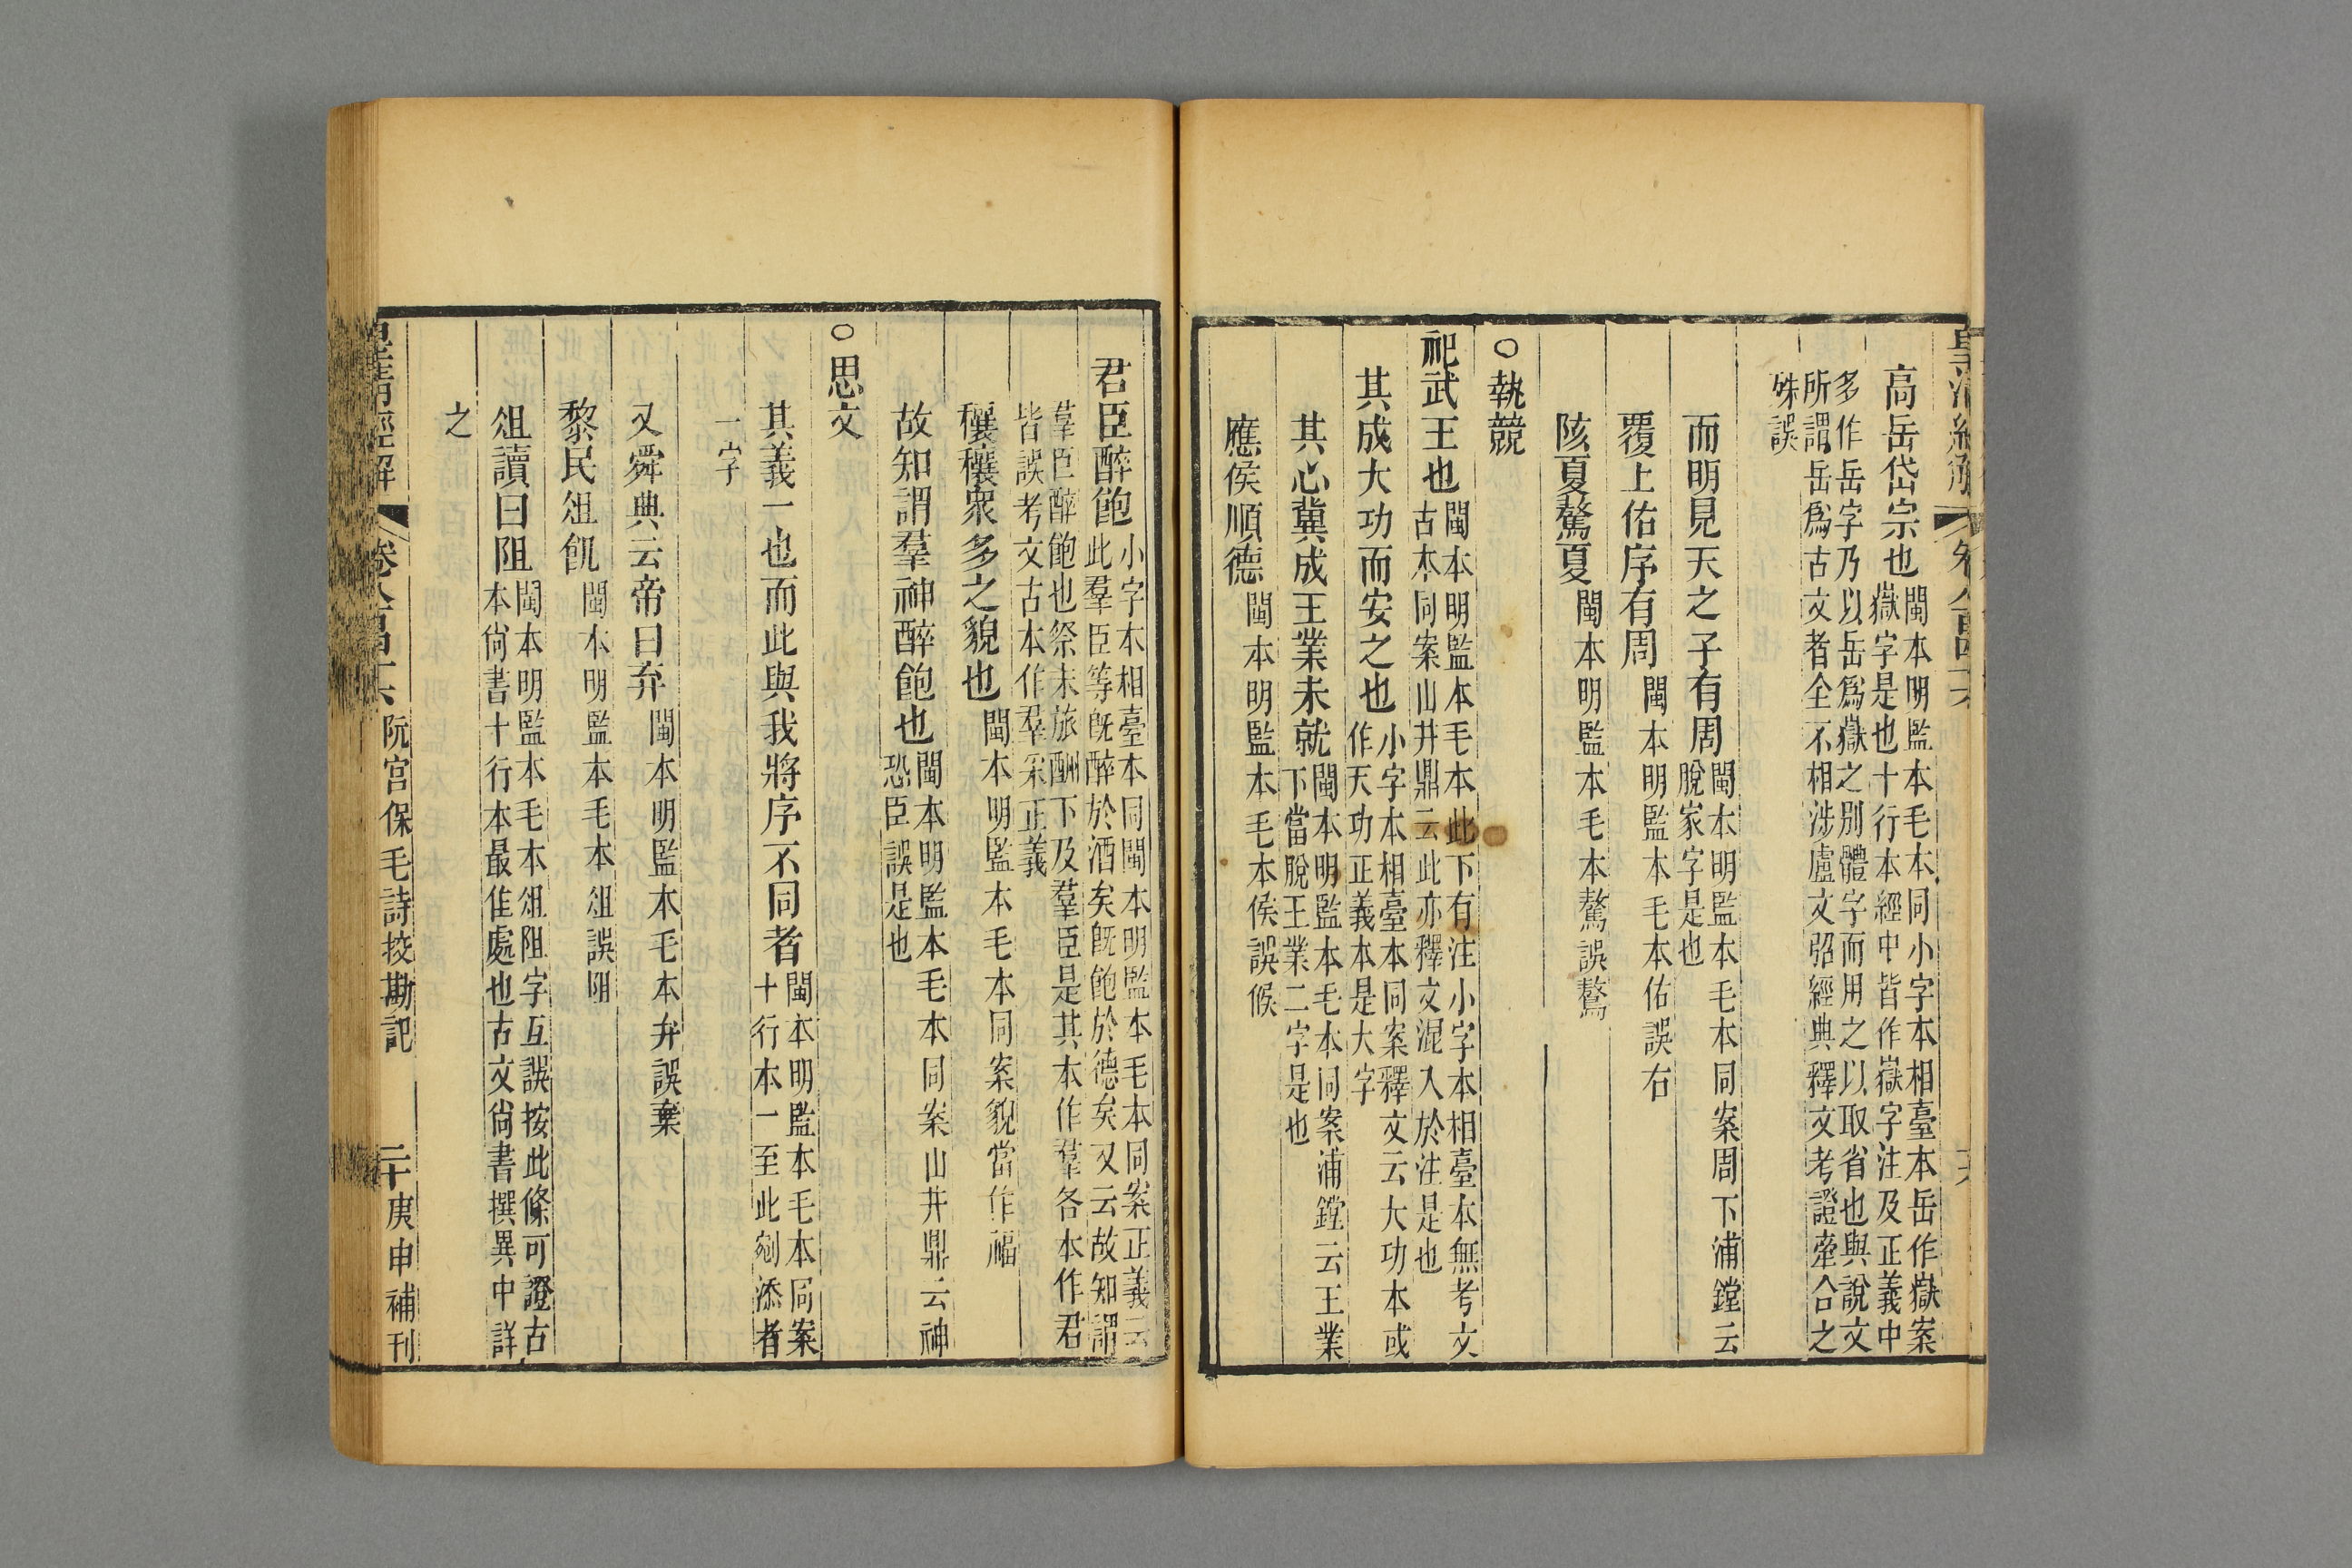 皇清經解 卷八百四十六
高岳岱宗也閩本明監本毛本同小字本相臺本岳作嶽案
嶽字是也十行本經中皆作嶽字注及正義中
多作岳字乃以岳爲嶽之別體字而用之以取省也與說文
所謂岳爲古文者全不相涉盧文弨經典釋文考證牽合之
殊誤
而明見天之子有周閩本明監本毛本同案周下浦鏜云
脫家字是也
覆上佑序有周閩本明監本毛本佑誤右
陔夏驁夏閩本明監本毛本驁誤鷔
○執競
祀武王也閩本明監本毛本此下有注小字本相臺本無考文
古本同案山井鼎云此亦釋文混入於注是也
其成大功而安之也小字本相臺本同案釋文云大功本或
作天功正義本是大字
其心冀成王業未就閩本明監本毛本同案浦鏜云王業
下當脫王業二字是也
應侯順德閩本明監本毛本侯誤候
君臣醉飽小字本相臺本同閩本明監本毛本同案正義云
此羣臣等旣醉於酒矣旣飽於德矣又云故知謂
羣臣醉飽也祭末旅酬下及羣臣是其本作羣各本作君
皆誤考文古本作羣采正義
穰穰衆多之貌也閩本明監本毛本同案貌當作福
故知謂羣神醉飽也閩本明監本毛本同案山井鼎云神
恐臣誤是也
○思文
其義一也而此與我將序不同者閩本明監本毛本同案
十行本一至此剜添者
一字
又舜典云帝曰弃閩本明監本毛本弃誤棄
黎民俎飢閩本明監本毛本俎誤阻
俎讀曰阻閩本明監本毛本俎阻字互誤按此條可證古
本尙書十行本最佳處也古文尙書撰異中詳
之
皇清經解 卷八百四十六 阮宮保毛詩挍勘記 二十 庚申補刊